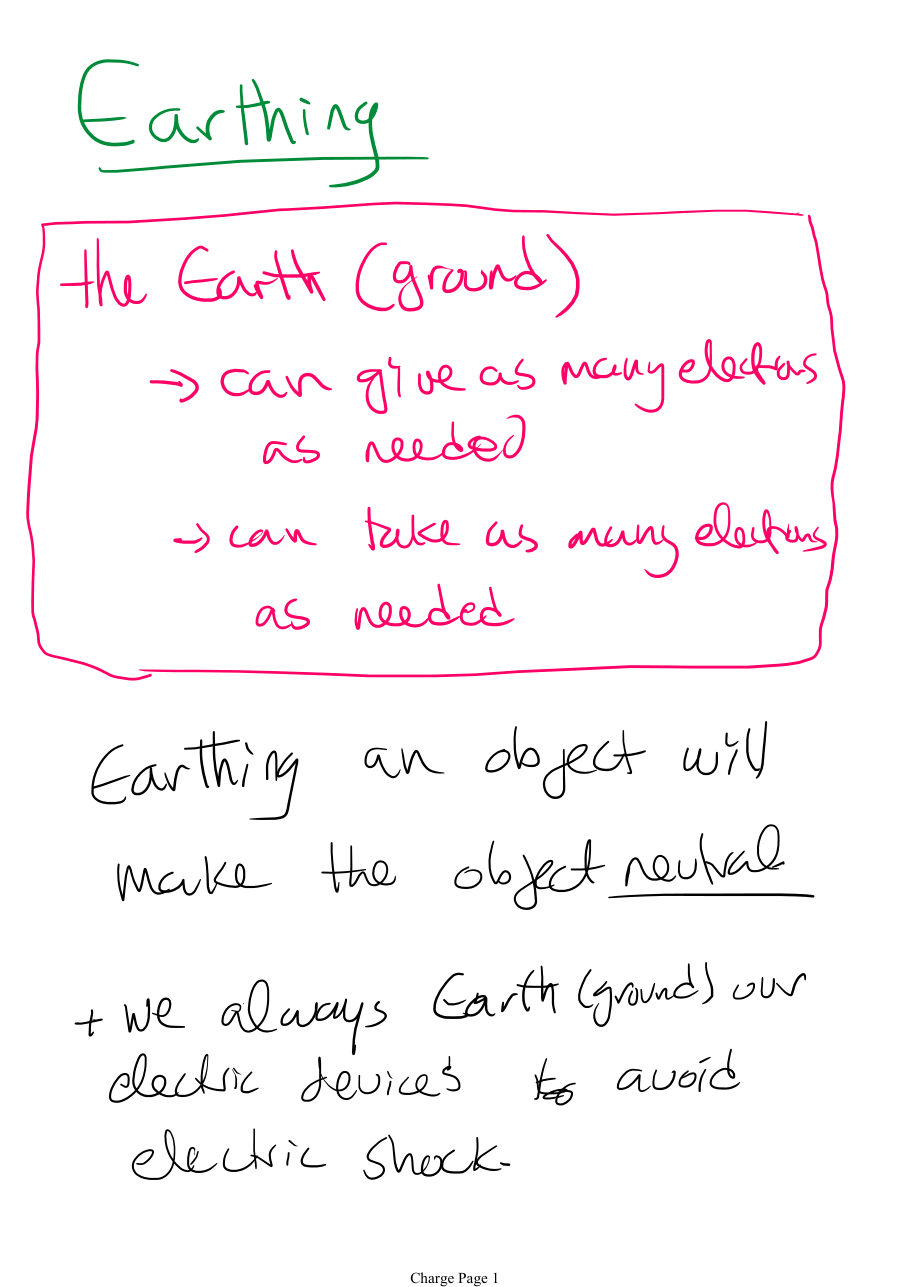 Earthing
the Earth (ground)
→ can give as many electrons
as needed
→ can take as many electrons
as needed
Earthing an object will
make the object neutral
+ we always Earth (ground) our
electric devices to avoid
electric shock.
Charge Page 1